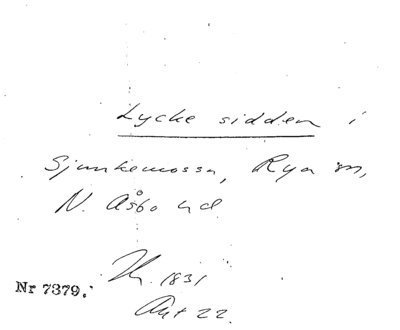 Lycke sidden i
Sjunkemossa, Rya sn,
N. Åsbo hd
Nr 7379.
1831
Akt 22.